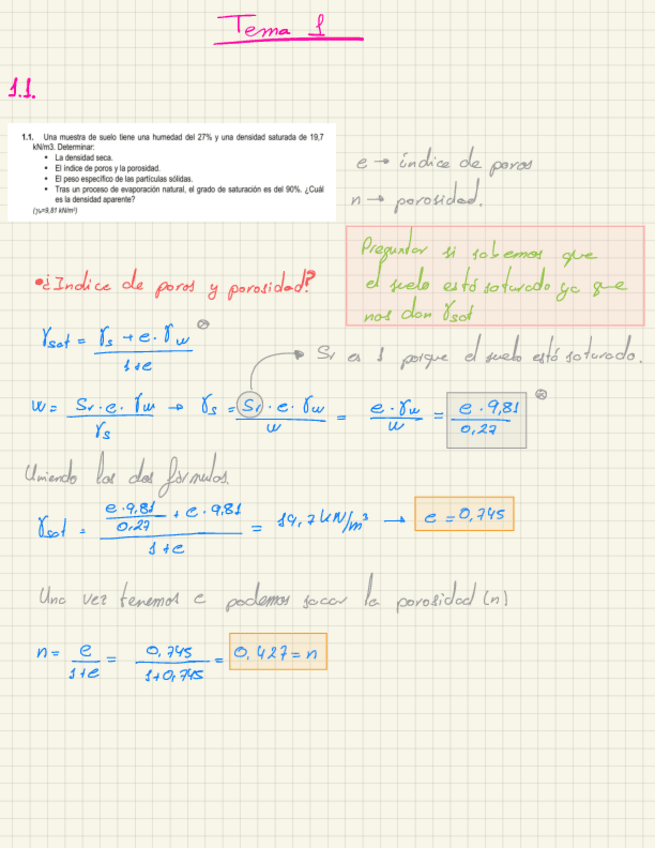 Tema 1
1.1.
1.1. Una muestra de suelo tiene una humedad del 27% y una densidad saturada de 19,7
kN/m3. Determinar:
• La densidad seca.
• El índice de poros y la porosidad.
• El peso específico de las partículas sólidas.
• Tras un proceso de evaporación natural, el grado de saturación es del 90%. ¿Cuál
es la densidad aparente?
(γw=9,81 kN/m³)
e → índice de poros
n → porosidad.
Preguntar si sabemos que
el suelo está saturado ya que
nos dan γsat
•¿Indice de poros y porosidad?
γsat = (γs + e · γw) / (1+e) ⊗
→ Sr es 1 porque el suelo está saturado.
w = (Sr · e · γw) / γs → γs = (Sr · e · γw) / w = (e · γw) / w = (e · 9,81) / 0,27 ⊗
Uniendo las dos fórmulas.
γsat = ((e · 9,81) / 0,27 + e · 9,81) / (1+e) = 19,7 kN/m³ → e = 0,745
Una vez tenemos e podemos sacar la porosidad (n)
n = e / (1+e) = 0,745 / (1+0,745) = 0,427 = n